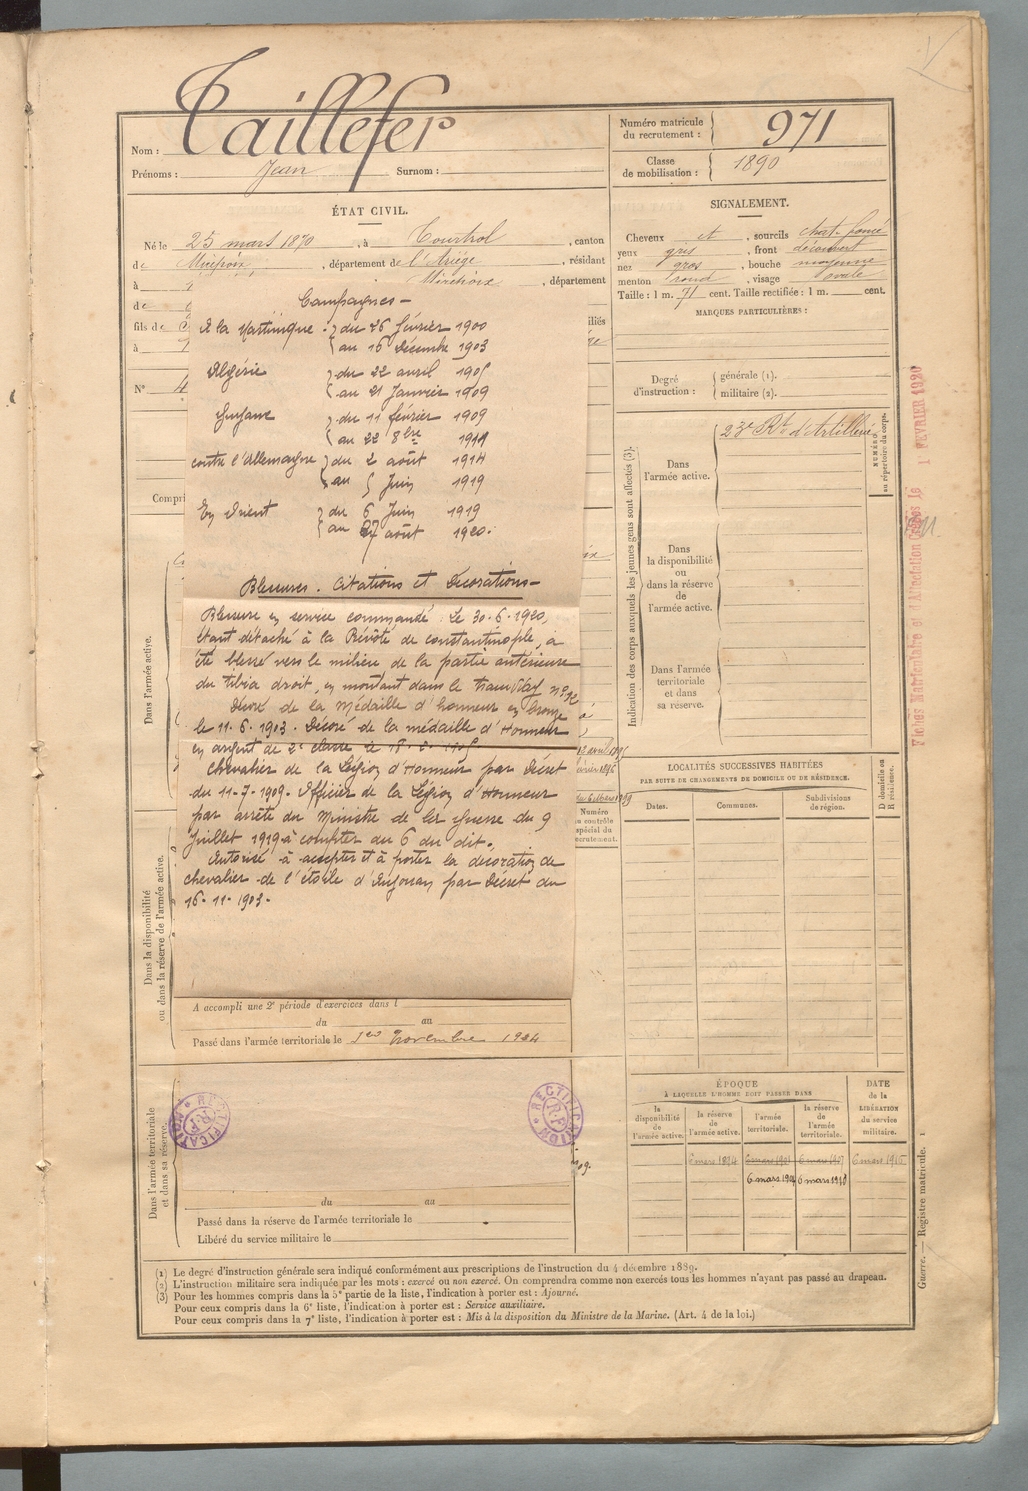 Nom : Taillefer
Prénoms : Jean Surnom :
Numéro matricule
du recrutement : 971
Classe
de mobilisation : 1890
ÉTAT CIVIL.
Né le 25 mars 1870, à Tourtrol, canton
de Mirepoix, département de l'Ariège, résidant
à Mirepoix, département
de
fils de
à
N° 4
Compri
Campagnes –
A la Martinique du 26 février 1900
au 16 Décembre 1903
Algérie du 22 avril 1905
au 21 Janvier 1909
Guyane du 11 février 1909
au 22 8bre
contre l'Allemagne du 2 août 1914
au 5 Juin 1919
En Orient du 6 Juin 1919
au 27 août 1920.
Blessures. Citations et Décorations –
Blessure en service commandé. Le 30-6-1920,
étant détaché à la Prévôté de Constantinople, a
été blessé vers le milieu de la partie antérieure
du tibia droit, en montant dans le tramway n° 12
Décoré de la Médaille d'honneur en bronze
le 11-6-1903. Décoré de la médaille d'Honneur
en argent de 2e classe le
Chevalier de la Légion d'Honneur par Décret
du 11-7-1909. Officier de la Légion d'Honneur
par arrêté du Ministre de la Guerre du 9
Juillet 1919 à compter du 6 du dit.
Autorisé à accepter et à porter la décoration de
chevalier de l'étoile d'Anjouan par Décret du
16-11-1903-
Dans l'armée active.
Dans la disponibilité
ou dans la réserve de l'armée active.
A accompli une 2e période d'exercices dans l
du au
Passé dans l'armée territoriale le 1er Novembre 1904
Dans l'armée territoriale
et dans sa réserve.
RECTIFICATION
R.F
RECTIFICATION
R.F
du au
Passé dans la réserve de l'armée territoriale le
Libéré du service militaire le
SIGNALEMENT.
Cheveux et, sourcils chat. foncé
yeux gris, front découvert
nez gros, bouche moyenne
menton rond, visage ovale
Taille : 1 m. 71 cent. Taille rectifiée : 1 m. cent.
MARQUES PARTICULIÈRES :
Degré
d'instruction :
générale (1).
militaire (2).
Indication des corps auxquels les jeunes gens sont affectés (3).
NUMÉRO
au répertoire du corps.
Dans
l'armée active.
23e Rt d'Artillerie
Dans
la disponibilité
ou
dans la réserve
de
l'armée active.
Dans l'armée
territoriale
et dans
sa réserve.
Fiches Matriculaire et d'Affectation Créées le 1 FEVRIER 1920
Numéro
au contrôle
spécial du
recrutement.
LOCALITÉS SUCCESSIVES HABITÉES
PAR SUITE DE CHANGEMENTS DE DOMICILE OU DE RÉSIDENCE.
Dates. Communes. Subdivisions
de région.
D domicile ou
R résidence.
ÉPOQUE
À LAQUELLE L'HOMME DOIT PASSER DANS
DATE
de la
LIBÉRATION
du service
militaire.
la
disponibilité
de
l'armée active.
la réserve
de
l'armée active.
l'armée
territoriale.
la réserve
de
l'armée
territoriale.
6 mars 1894 6 mars 1901 6 mars 1907 6 mars 1916
6 mars 1904 6 mars 1910
Guerre. — Registre matricule. 1
(1) Le degré d'instruction générale sera indiqué conformément aux prescriptions de l'instruction du 4 décembre 1889.
(2) L'instruction militaire sera indiquée par les mots : exercé ou non exercé. On comprendra comme non exercés tous les hommes n'ayant pas passé au drapeau.
(3) Pour les hommes compris dans la 5e partie de la liste, l'indication à porter est : Ajourné.
Pour ceux compris dans la 6e liste, l'indication à porter est : Service auxiliaire.
Pour ceux compris dans la 7e liste, l'indication à porter est : Mis à la disposition du Ministre de la Marine. (Art. 4 de la loi.)